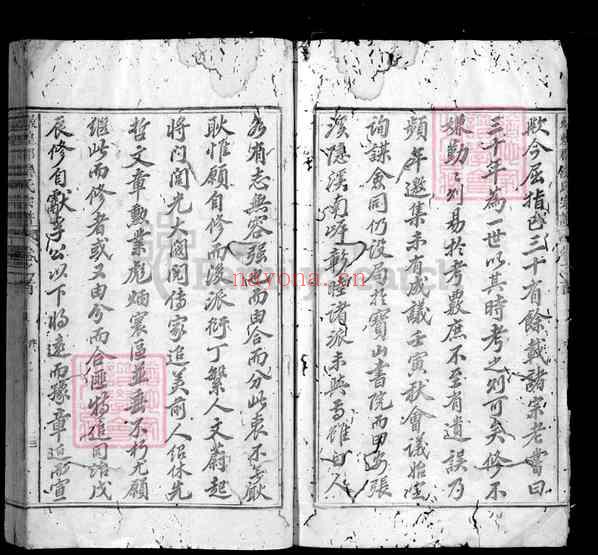 歟今屈指已三十有餘載諸宗老嘗曰
三十年為一世以其時考之則可矣修不
嫌勤勤則易於考覈庶不至有遺誤乃
頻年選集未有成議壬寅秋會議始定
詢謀僉同仍設局於寶山書院而
溪隱溪南諸派未與焉雖曰人
各有志無容強然而由合而分此衷不無
耿耿惟願自修而後派衍丁繁人文蔚起
將門閥光大閥閱儒家追美前人紹休先
哲文章勳業彪炳寰區並垂不朽尤願
繼此而修者或又由分而合匪特追同治戊
辰修自獻李公以下將遠而豫章近而宣
nayona.cn
FamilySearch